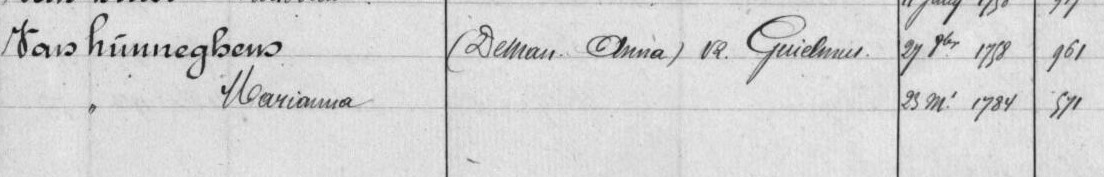 Van hünneghem (Deman Anna) vr. Guielmus. 27 9br 1758 961
„ Marianna 23 Mt 1784 571